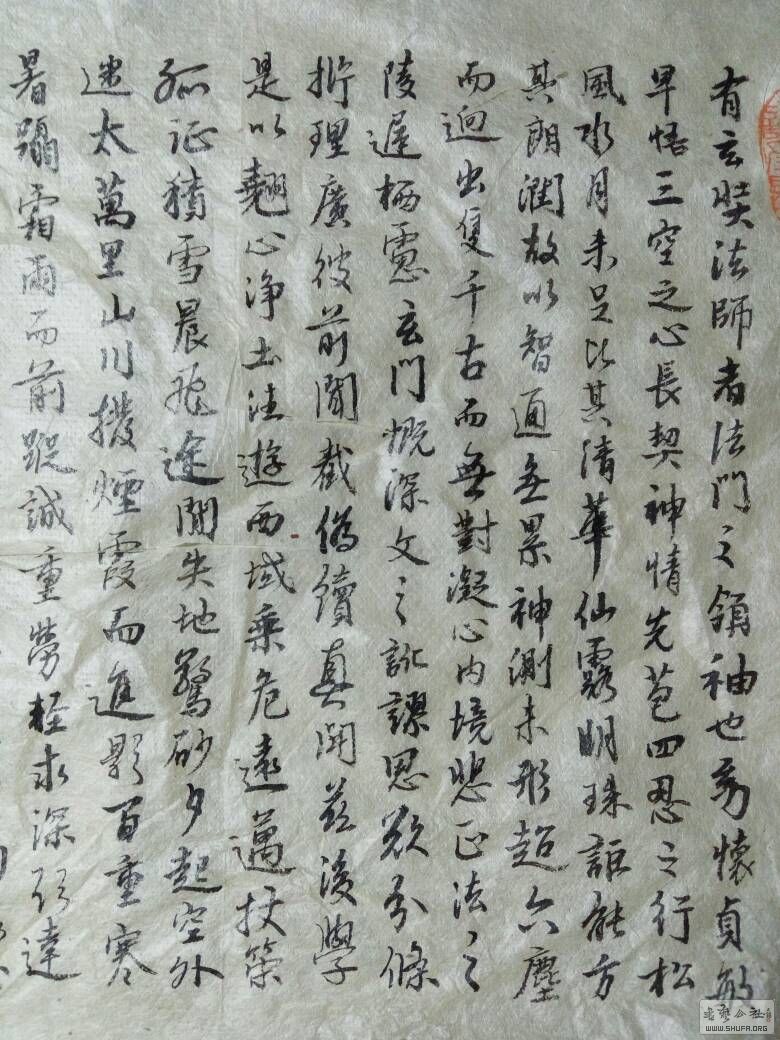 有玄奘法師者法門之領袖也幼懷貞敏
早悟三空之心長契神情先苞四忍之行松
風水月未足比其清華仙露明珠詎能方
其朗潤故以智通無累神測未形超六塵
而迥出隻千古而無對凝心內境悲正法之
陵遲栖慮玄門慨深文之訛謬思欲分條
析理廣彼前聞截偽續真開茲後學
是以翹心淨土往遊西域乘危遠邁杖策
孤征積雪晨飛途間失地驚砂夕起空外
迷天萬里山川撥煙霞而進影百重寒
暑躡霜雨而前蹤誠重勞輕求深願達
WWW.SHUFA.ORG